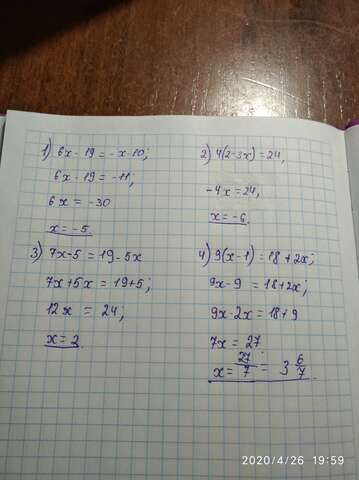 1) 6x - 19 = -x - 10;
6x - 19 = -11;
6x = -30
x = -5.
2) 4(2-3x) = 24,
-4x = 24,
x = -6.
3) 7x - 5 = 19 - 5x
7x + 5x = 19 + 5;
12x = 24;
x = 2.
4) 9(x-1) = 18 + 2x;
9x - 9 = 18 + 2x;
9x - 2x = 18 + 9
7x = 27
x = 27/7 = 3 6/7.
2020/4/26 19:59